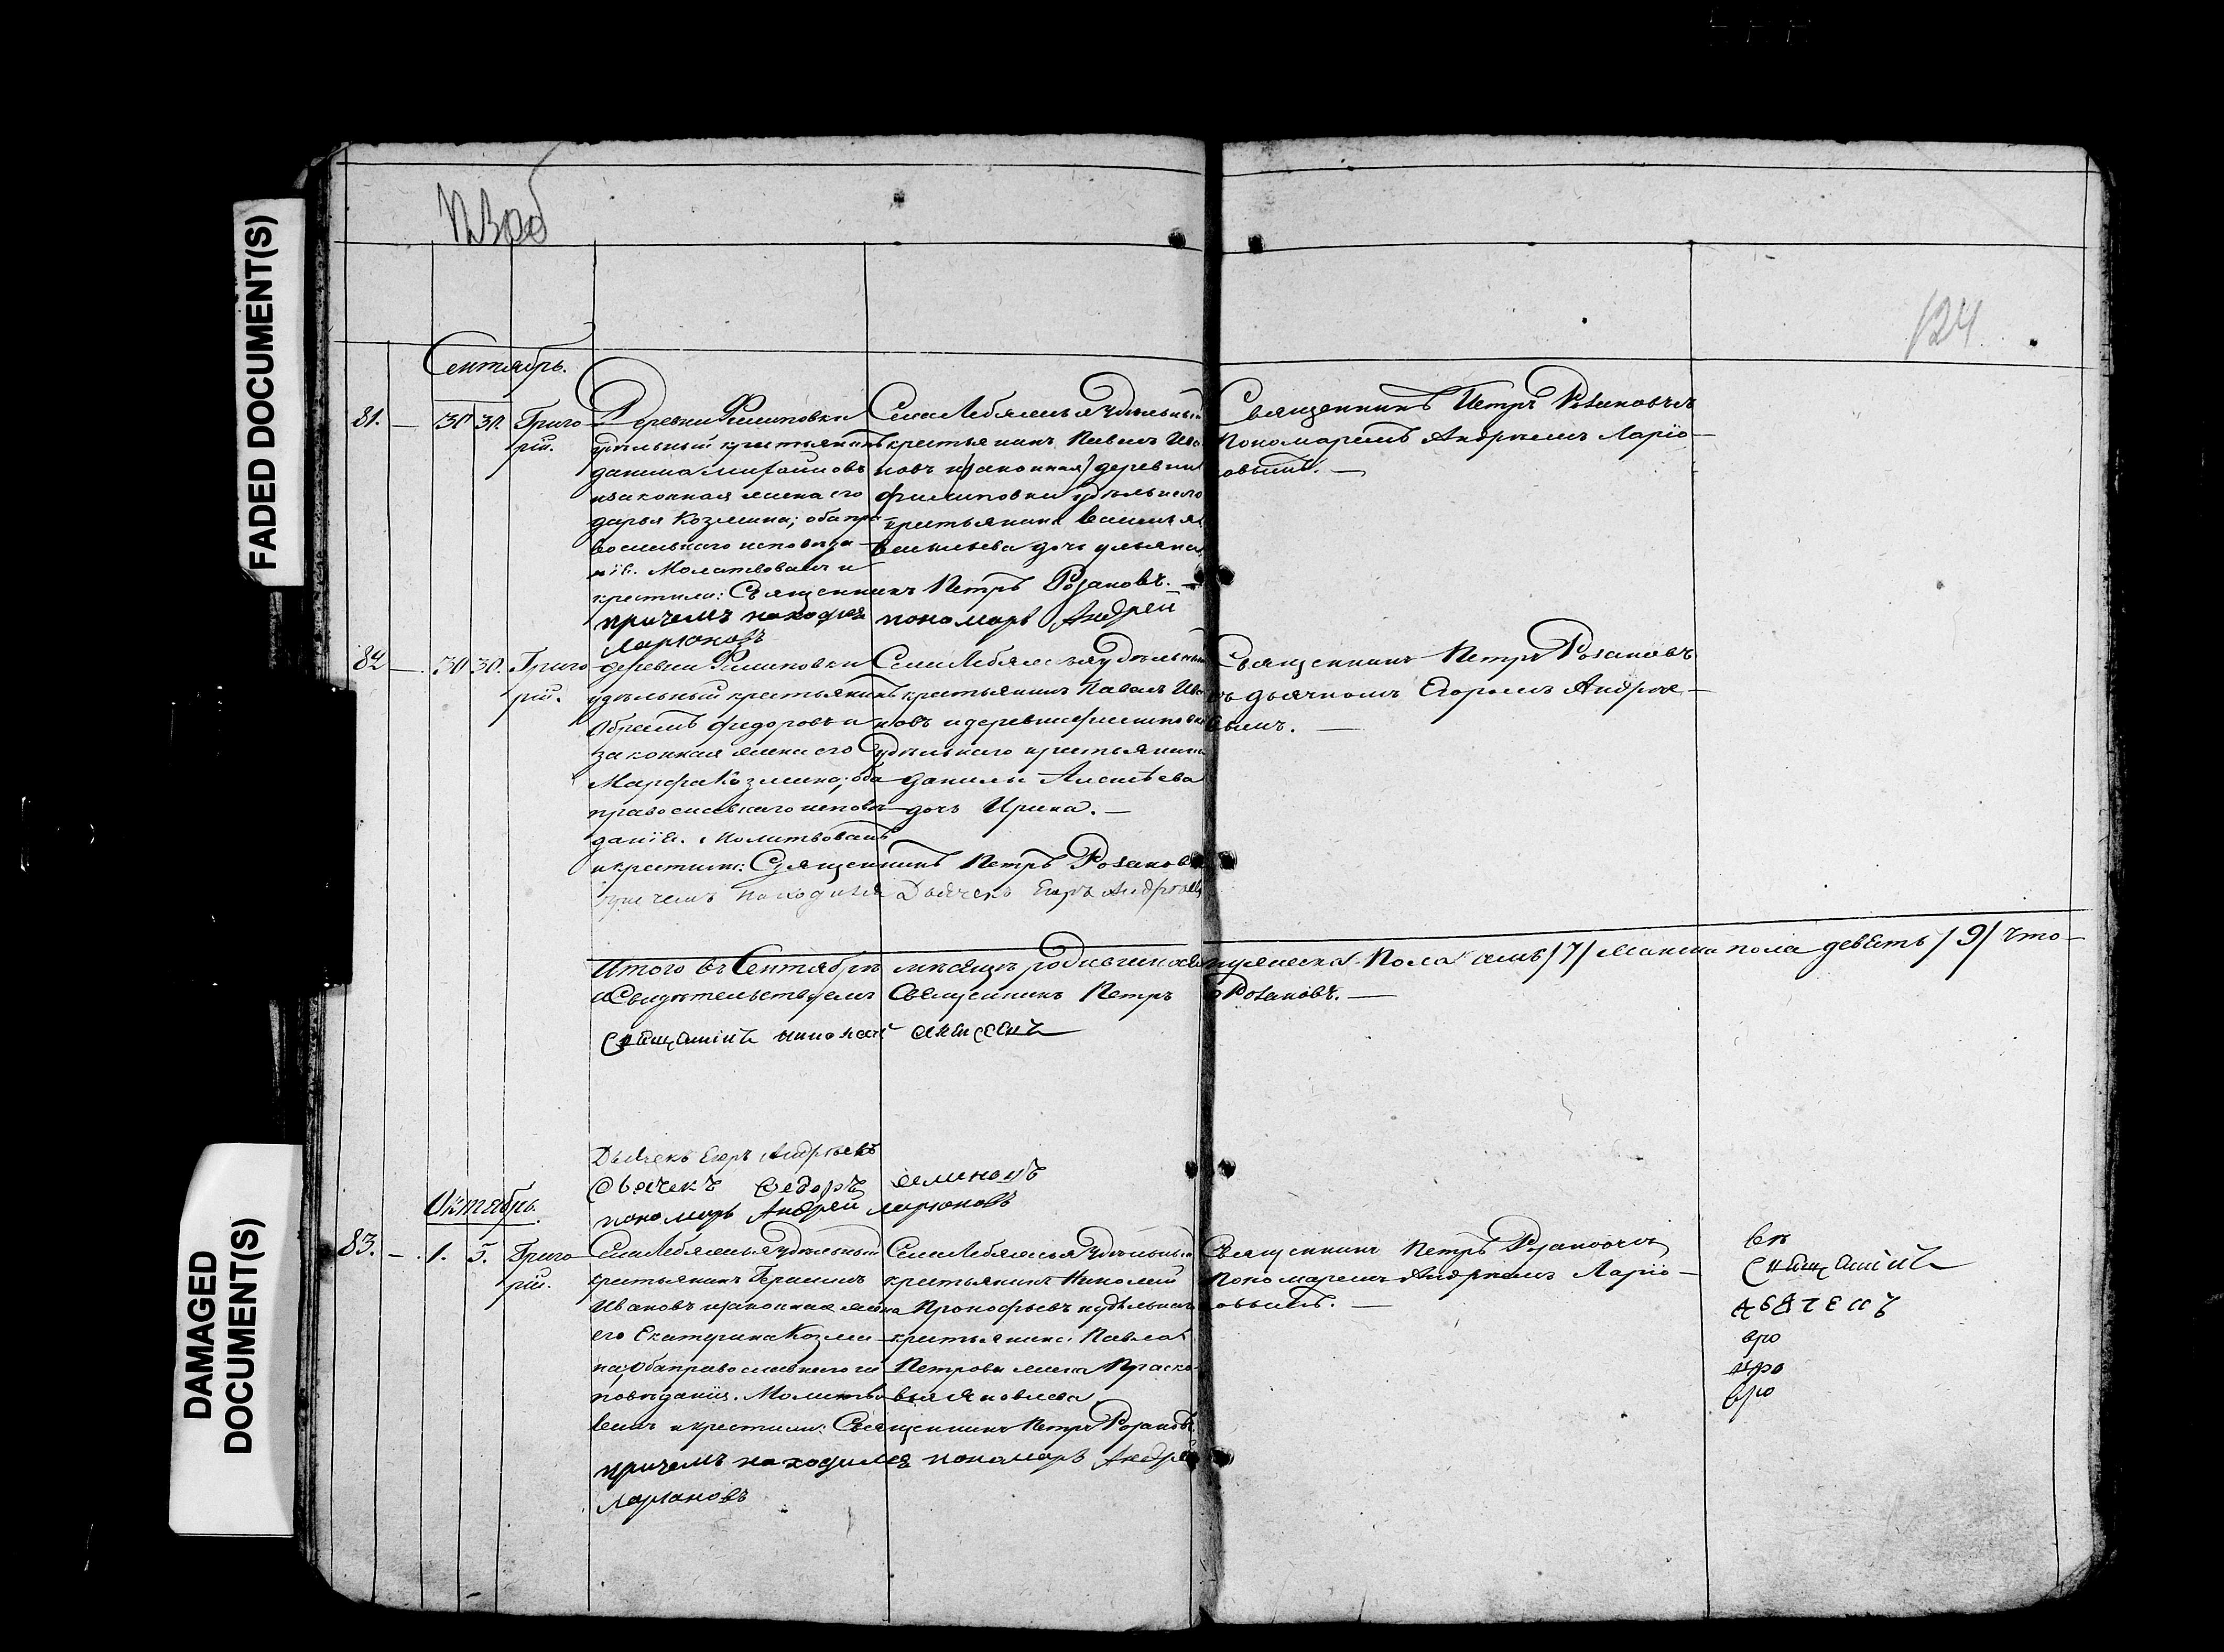 124
Сентябрь.
81. — 30 30. Григо
рій.
Деревни Филиповки
удѣльный крестьянинъ
данила михайловъ
изаконная жена его
дарья Козмина; оба пра-
вославнаго исповѣда-
нія. Молитвовалъ и
крестилъ: Священникъ Петръ Розановъ. —
причемъ находился пономарь Андрей
Ларіоновъ
Села Лебяжья Удѣльный
крестьянинъ Павелъ Ива
новъ и деревни
филиповки удѣльнаго
крестьянина
Васильева дочь ульяна
Священникъ Петръ Розановъ съ
Пономаремъ Андреемъ Ларіо—
овымъ. —
82 — 30 30. Григо
рій.
деревни Филиповки
удѣльный крестьянинъ
федоровъ и
законная жена его
Марфа Козмина; оба
православнаго исповѣ
данія. Молитвовалъ
и крестилъ: Священникъ Петръ Розановъ
причемъ находился Дьячекъ Егоръ Андреевъ
Села Лебяжья удѣльный
крестьянинъ Павелъ Ива
новъ и деревни филиповки
Удѣльнаго крестьянина
данилы Алексѣева
дочь Ирина. —
Священникъ Петръ Розановъ
съ дьячкомъ Егоромъ Андрее—
вымъ. —
Итого въ Сентябрѣ мѣсяцѣ родившихся мужеска Пола семь /7/ женска пола девѣть /9/ что—
и Свидѣтельствуемъ Священникъ Петръ Розановъ. —
Дьячекъ Егоръ Андреевъ
Дьячекъ Федоръ семеновъ
пономарь Андрей ларіоновъ
Октябрь.
83. — 1. 5. Григо
рій.
Села Лебяжья Удѣльный
крестьянинъ Герасимъ
Ивановъ изаконная жена
его Екатерина Козми—
на; Оба православнаго ис
повѣданія. Молитво
валъ и крестилъ: Священникъ Петръ Розановъ.
причемъ находился пономарь Андрей
Ларіановъ
Села Лебяжья Удѣльный
крестьянинъ Николай
Прокофьевъ иудѣльнаго
крестьянина Павла
Петрова жена Праско
вья Яковлева
Священникъ Петръ Розановъ съ
Пономаремъ Андреемъ Ларіо—
овымъ. —